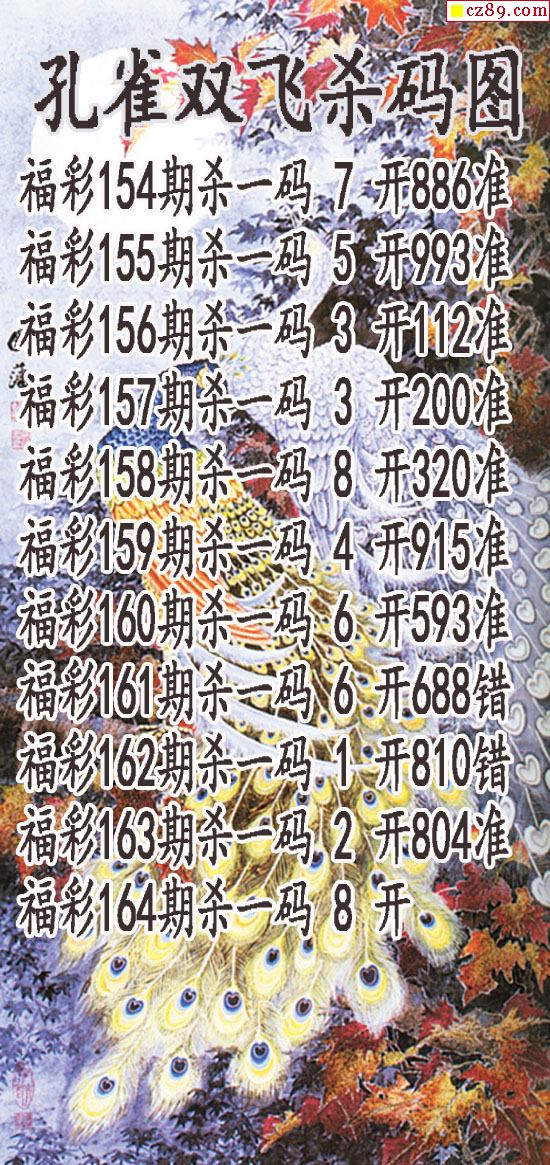 cz89.com
孔雀双飞杀码图
福彩154期杀一码 7 开886准
福彩155期杀一码 5 开993准
福彩156期杀一码 3 开112准
福彩157期杀一码 3 开200准
福彩158期杀一码 8 开320准
福彩159期杀一码 4 开915准
福彩160期杀一码 6 开593准
福彩161期杀一码 6 开688错
福彩162期杀一码 1 开810错
福彩163期杀一码 2 开804准
福彩164期杀一码 8 开